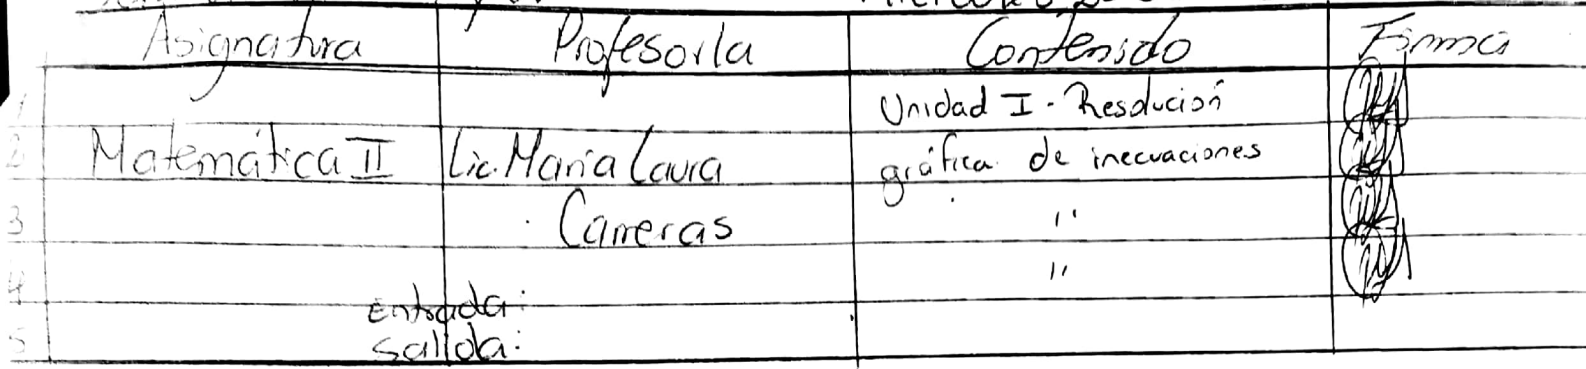 Asignatura Profesor/a Contenido Firma
1 Unidad I - Resolución
2 Matemática II Lic. María Laura gráfica de inecuaciones
3 Carreras "
4 "
Entrada:
5 Salida: